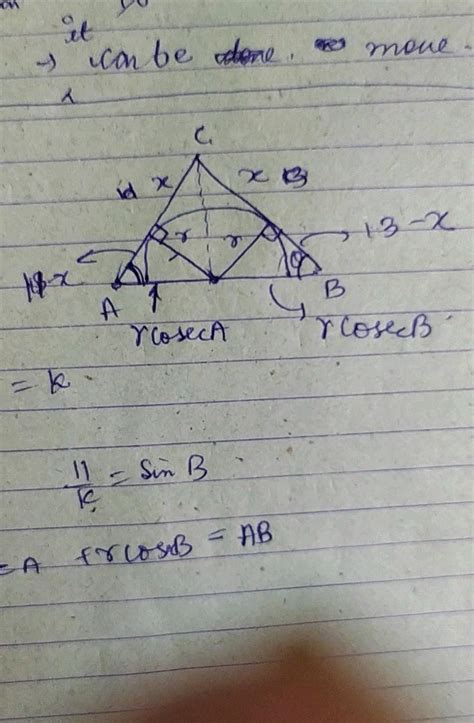 it
→ can be done. move.
C
x x 13
r r
13-x
11-x
A B
r cosec A r cosec B
= k
11/k = Sin B
= A + r cos B = AB